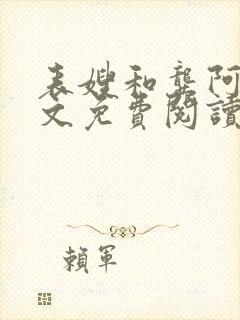 表嫂和龔阿
文免費閱讀
賴軍